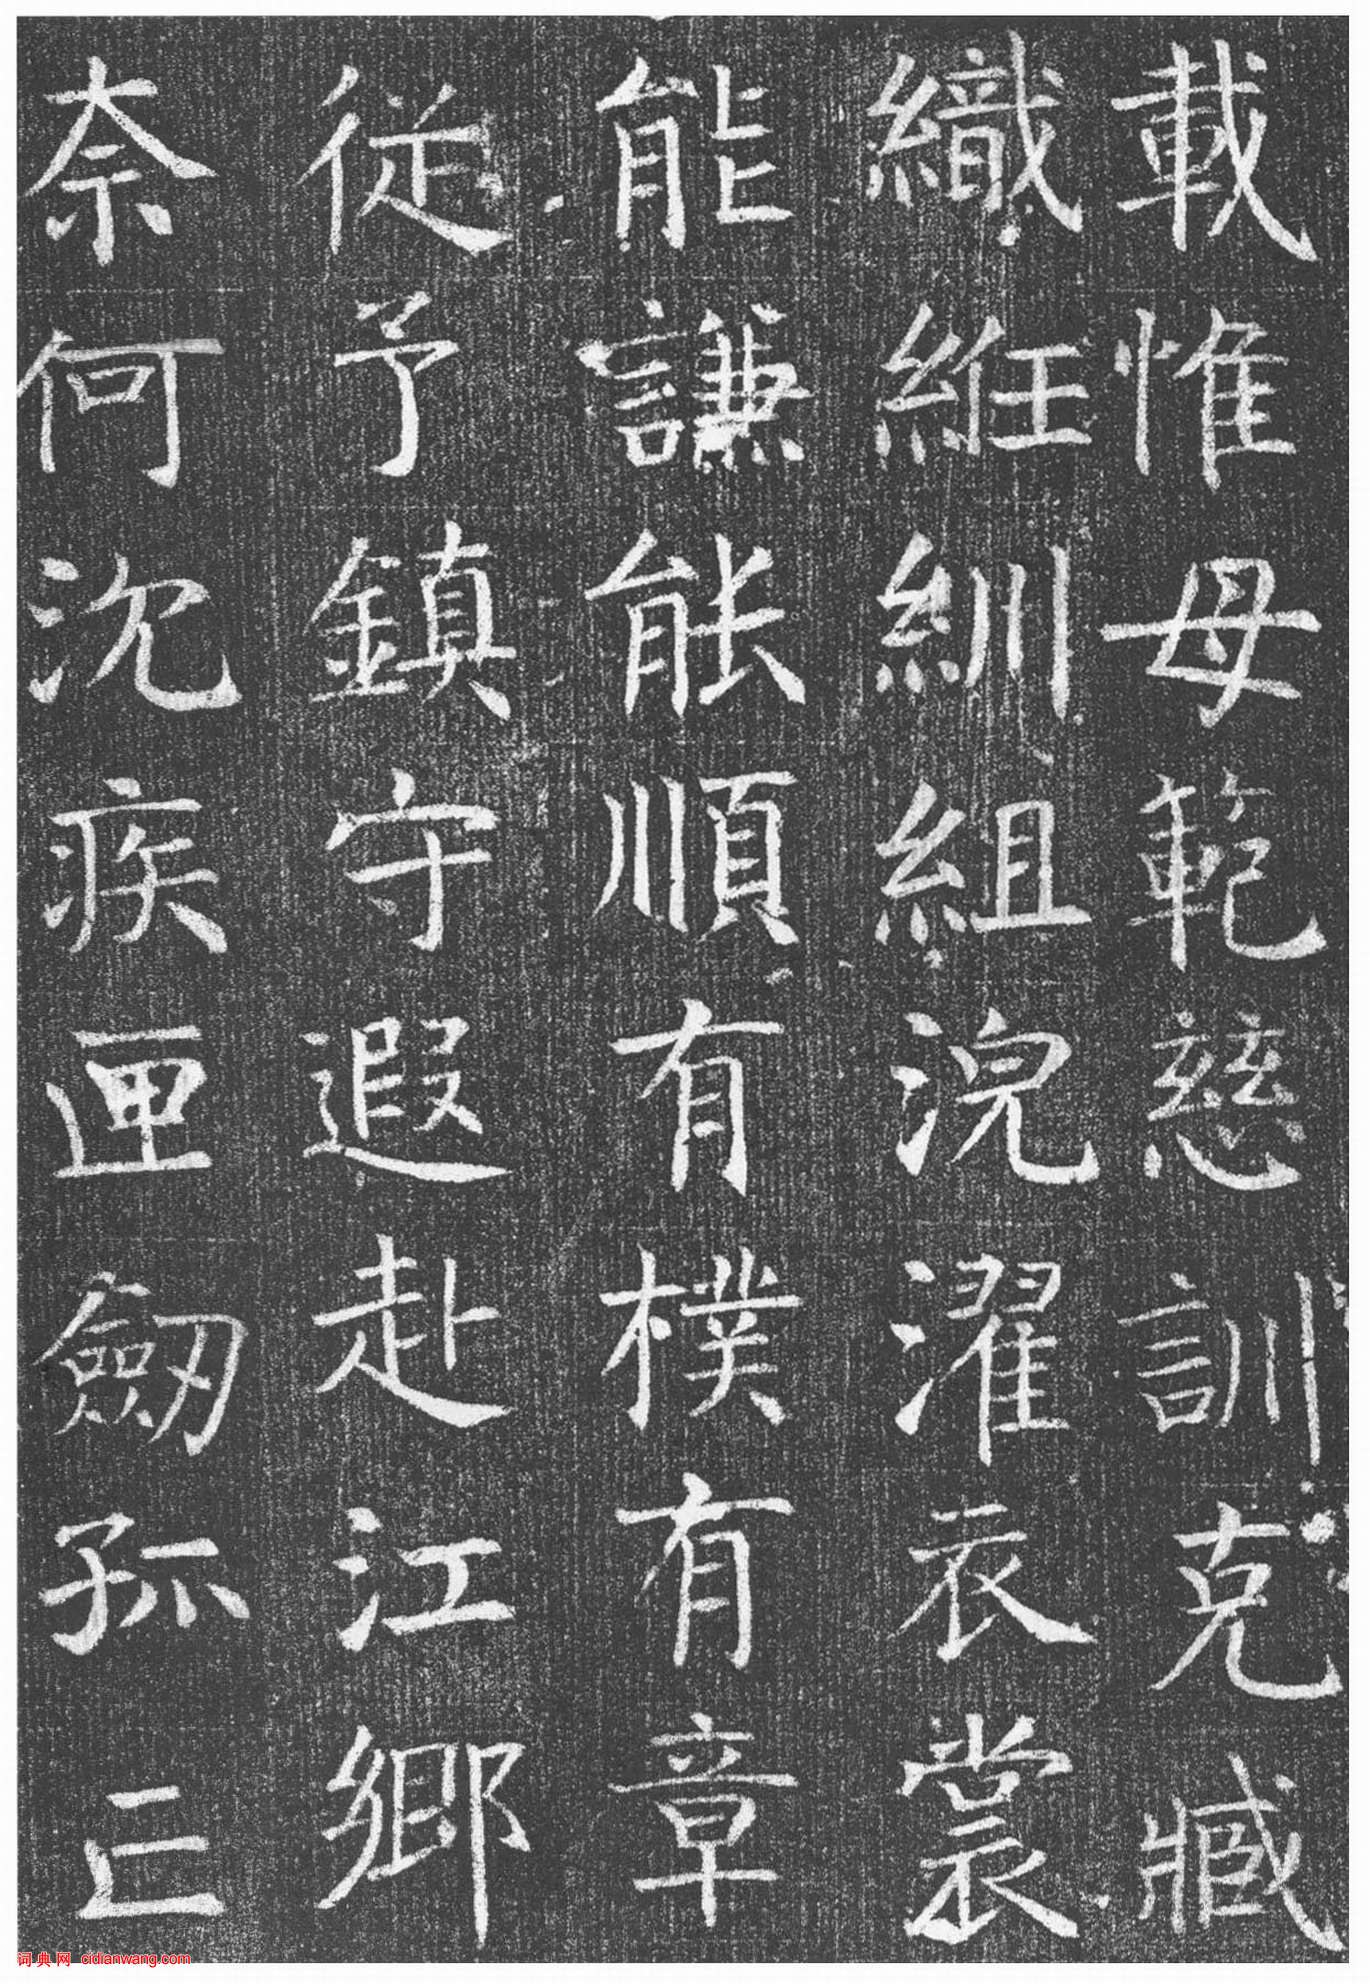 載惟母範慈訓克臧
織紝紃組浣濯衣裳
能謙能順有樸有章
從予鎮守遐赴江鄉
奈何沈疾匣劒孤亡
词典网 cidianwang.com